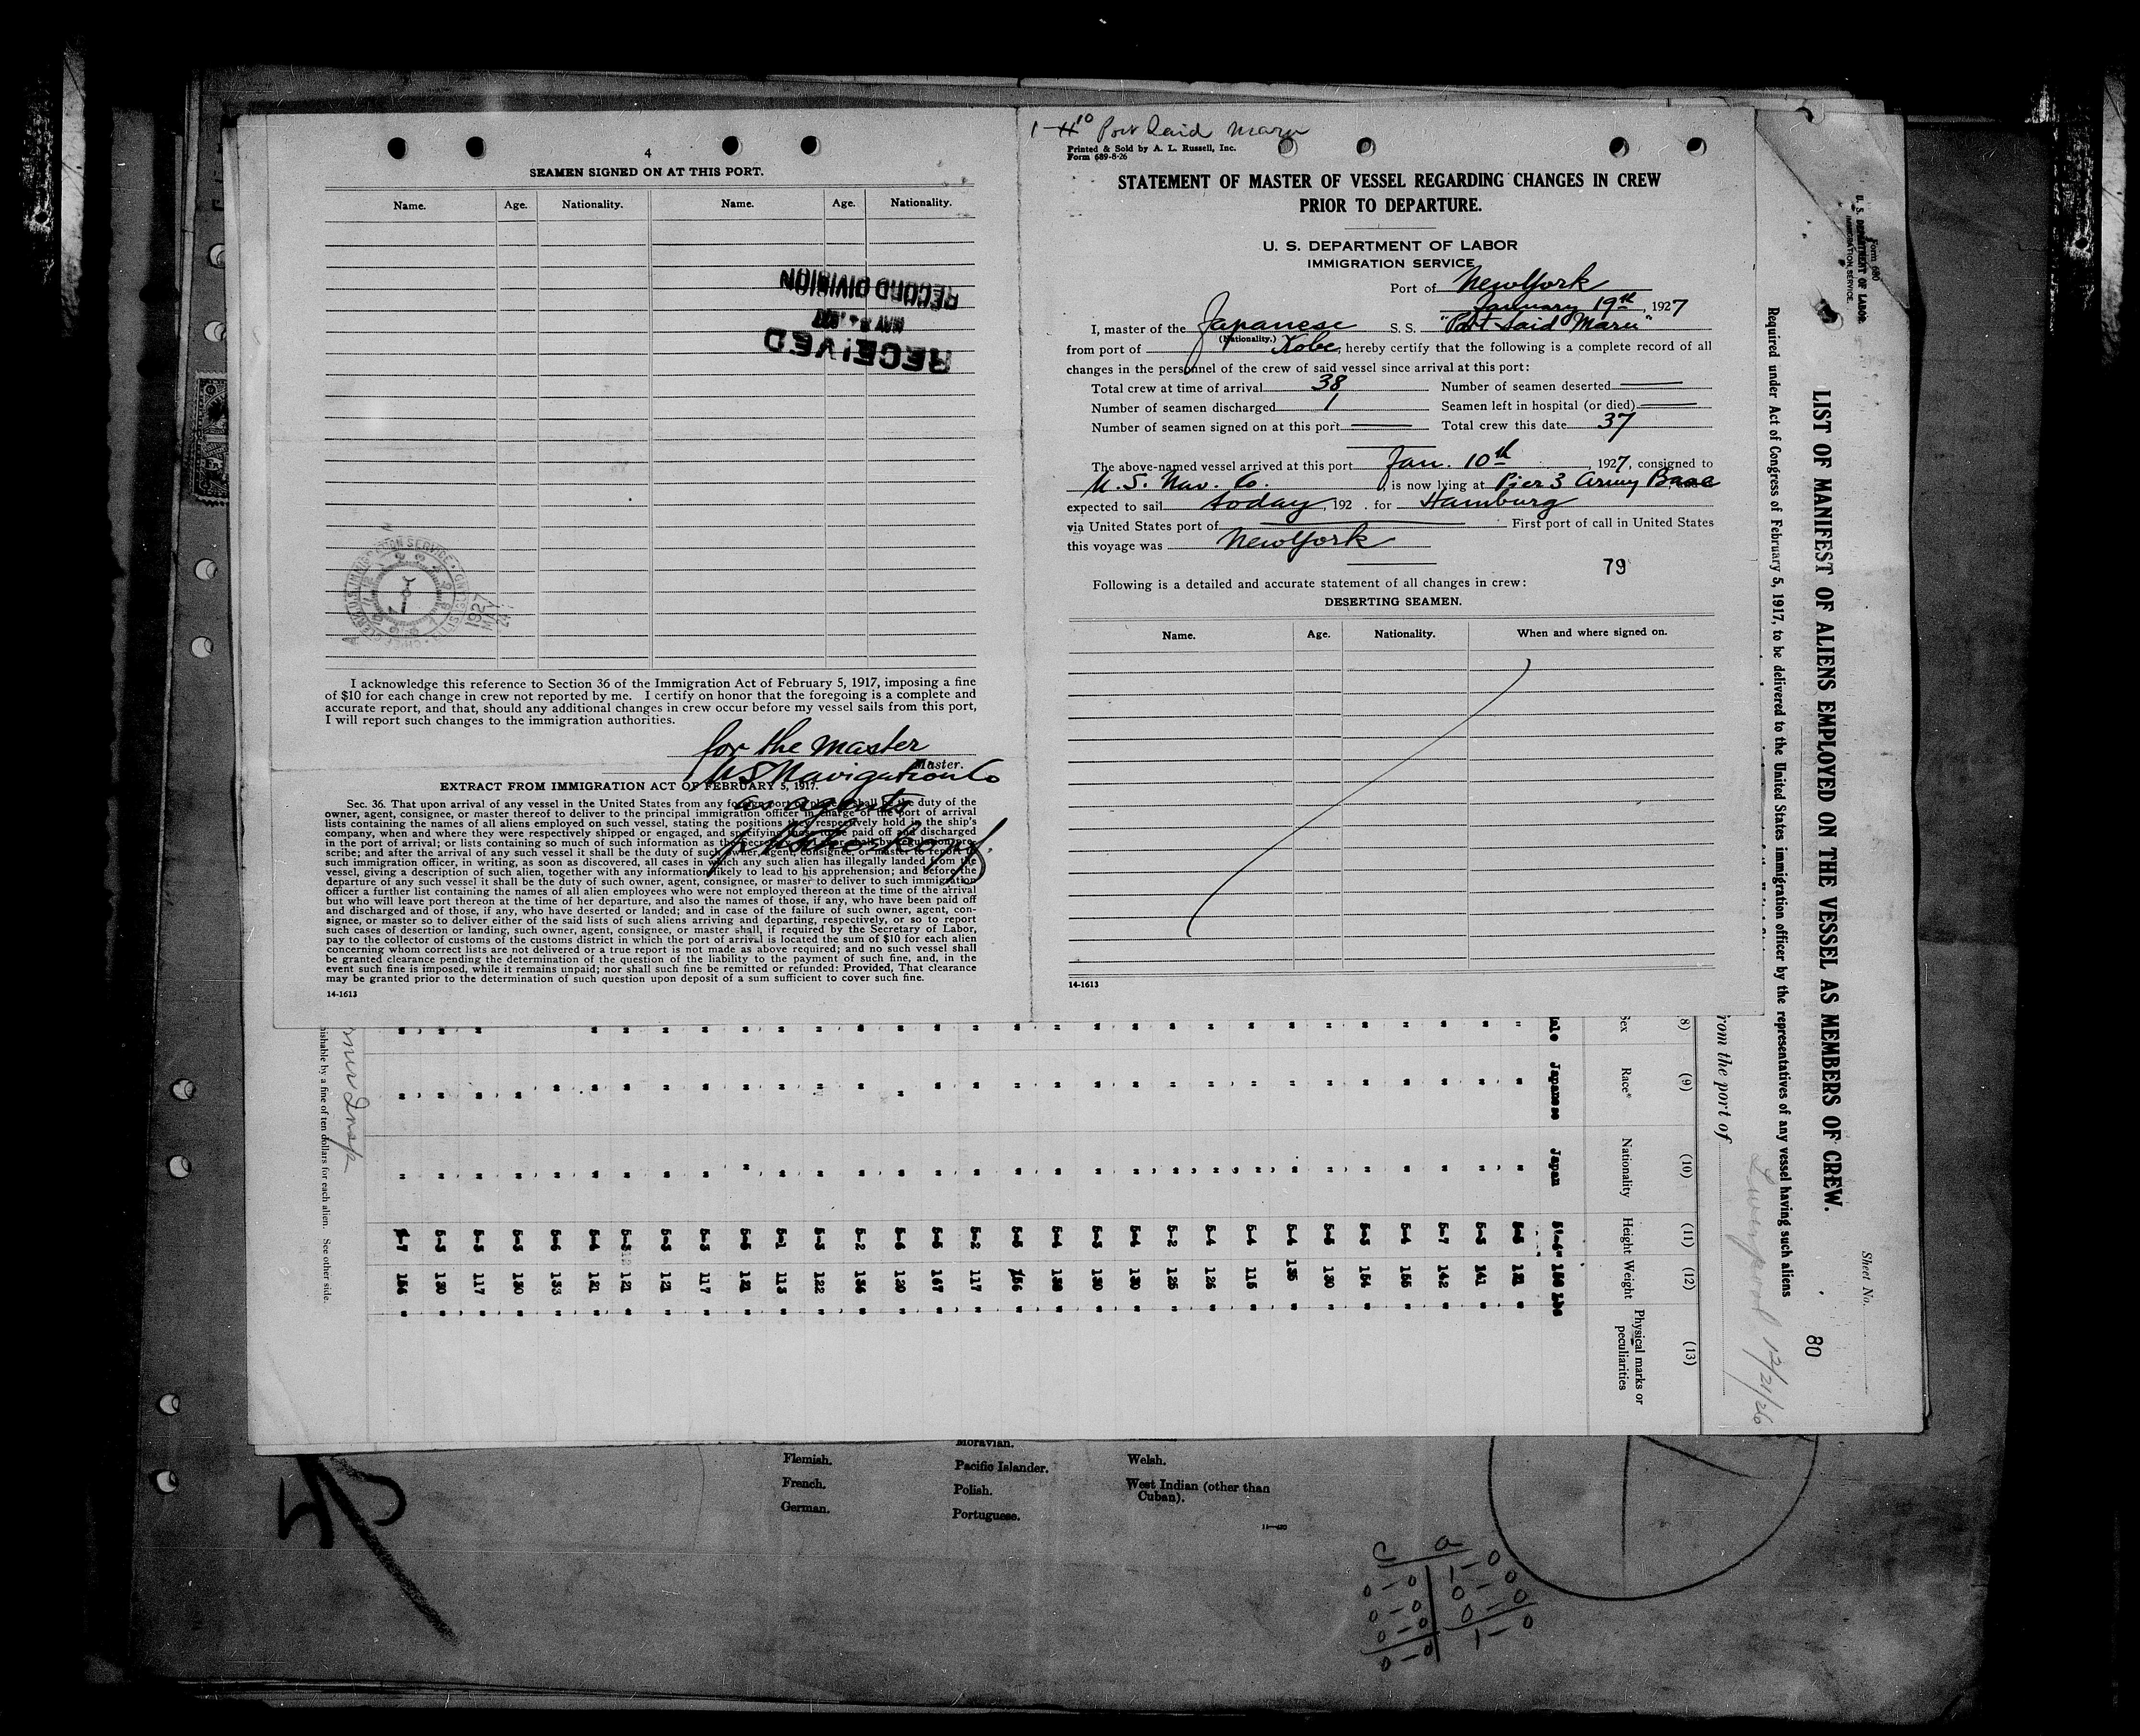 4
SEAMEN SIGNED ON AT THIS PORT.
Name. Age. Nationality. Name. Age. Nationality.
RECORD DIVISION
RECEIVED
1927
MAY
I acknowledge this reference to Section 36 of the Immigration Act of February 5, 1917, imposing a fine
of $10 for each change in crew not reported by me. I certify on honor that the foregoing is a complete and
accurate report, and that, should any additional changes in crew occur before my vessel sails from this port,
I will report such changes to the immigration authorities.
for the master
Master.
U S Navigation Co
EXTRACT FROM IMMIGRATION ACT OF FEBRUARY 5, 1917.
as agents
Sec. 36. That upon arrival of any vessel in the United States from any foreign port or place it shall be the duty of the
owner, agent, consignee, or master thereof to deliver to the principal immigration officer in charge of the port of arrival
lists containing the names of all aliens employed on such vessel, stating the positions they respectively hold in the ship's
company, when and where they were respectively shipped or engaged, and specifying those to be paid off and discharged
in the port of arrival; or lists containing so much of such information as the Secretary of Labor shall by regulation pre-
scribe; and after the arrival of any such vessel it shall be the duty of such owner, agent, consignee, or master to report to
such immigration officer, in writing, as soon as discovered, all cases in which any such alien has illegally landed from the
vessel, giving a description of such alien, together with any information likely to lead to his apprehension; and before the
departure of any such vessel it shall be the duty of such owner, agent, consignee, or master to deliver to such immigration
officer a further list containing the names of all alien employees who were not employed thereon at the time of the arrival
but who will leave port thereon at the time of her departure, and also the names of those, if any, who have been paid off
and discharged and of those, if any, who have deserted or landed; and in case of the failure of such owner, agent, con-
signee, or master so to deliver either of the said lists of such aliens arriving and departing, respectively, or so to report
such cases of desertion or landing, such owner, agent, consignee, or master shall, if required by the Secretary of Labor,
pay to the collector of customs of the customs district in which the port of arrival is located the sum of $10 for each alien
concerning whom correct lists are not delivered or a true report is not made as above required; and no such vessel shall
be granted clearance pending the determination of the question of the liability to the payment of such fine, and, in the
event such fine is imposed, while it remains unpaid; nor shall such fine be remitted or refunded: Provided, That clearance
may be granted prior to the determination of such question upon deposit of a sum sufficient to cover such fine.
14-1613
Port Said Maru
Printed & Sold by A. L. Russell, Inc.
Form 689-8-26
STATEMENT OF MASTER OF VESSEL REGARDING CHANGES IN CREW
PRIOR TO DEPARTURE.
U. S. DEPARTMENT OF LABOR
IMMIGRATION SERVICE
Port of New York
January 19th, 1927
I, master of the Japanese S. S. "Port Said Maru"
(Nationality.)
from port of Kobe, hereby certify that the following is a complete record of all
changes in the personnel of the crew of said vessel since arrival at this port:
Total crew at time of arrival 38 Number of seamen deserted
Number of seamen discharged 1 Seamen left in hospital (or died)
Number of seamen signed on at this port Total crew this date 37
The above-named vessel arrived at this port Jan. 10th, 1927, consigned to
U. S. Nav. Co., is now lying at Pier 3 Army Base
expected to sail today, 192 . for Hamburg
via United States port of First port of call in United States
this voyage was New York
79
Following is a detailed and accurate statement of all changes in crew:
DESERTING SEAMEN.
Name. Age. Nationality. When and where signed on.
14-1613
Form 680
U. S. DEPARTMENT OF LABOR
IMMIGRATION SERVICE.
Sheet No.
LIST OF MANIFEST OF ALIENS EMPLOYED ON THE VESSEL AS MEMBERS OF CREW.
80
Required under Act of Congress of February 5, 1917, to be delivered to the United States immigration officer by the representatives of any vessel having such aliens
from the port of Liverpool 12/21/26
(8) (9) (10) (11) (12) (13)
Sex Race* Nationality Height Weight Physical marks or
peculiarities
Japanese Japan
5-3 121
5-3 141
5-7 142
5-4 155
5-3 154
5-5 130
5-4 135
5-4 115
5-4 126
5-2 125
5-4 130
5-3 130
5-4 138
5-5 156
5-2 117
5-5 167
5-4 120
5-2 136
5-3 122
5-1 113
5-5 121
5-3 117
5-3 121
5-3 121
5-4 121
5-6 133
5-3 130
5-3 117
5-3 130
5-7 156
ishable by a fine of ten dollars for each alien. See other side.
Moravian.
Flemish. Pacific Islander. Welsh.
French. Polish. West Indian (other than
Cuban).
German. Portuguese.
C a
0-0 1-0
0-0 0-0
0-0 0-0
0-0 1-0